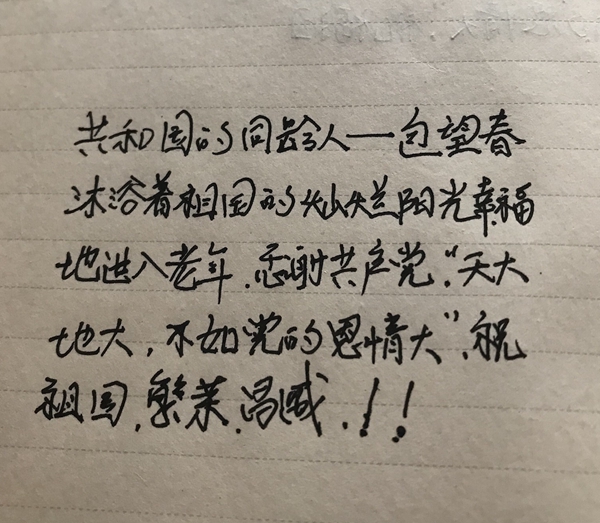 共和国的同龄人一包望春
沐浴着祖国的灿烂阳光幸福
地进入老年.感谢共产党.“天大
地大,不如党的恩情大”.祝
祖国.繁荣.昌盛.!!